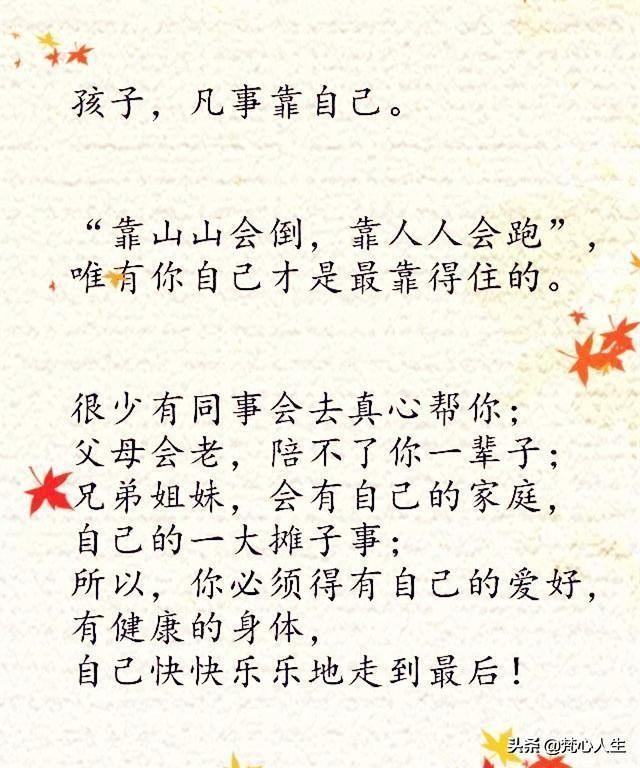 孩子，凡事靠自己。
“靠山山会倒，靠人人会跑”，
唯有你自己才是最靠得住的。
很少有同事会去真心帮你；
父母会老，陪不了你一辈子；
兄弟姐妹，会有自己的家庭，
自己的一大摊子事；
所以，你必须得有自己的爱好，
有健康的身体，
自己快快乐乐地走到最后！
头条 @梵心人生